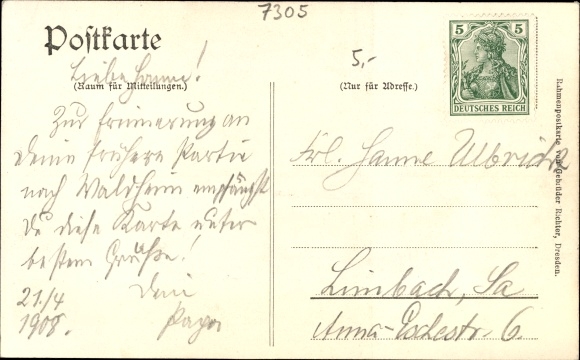 7305
Postkarte
Liebe Hanne!
(Raum für Mitteilungen.)
Zur Erinnerung an
Deine frühere Partie
nach Waldheim empfängst
Du diese Karte unter
besten Grüße!
21./4
1908.
Dein
Papa
5,-
(Nur für Adresse.)
5 5
DEUTSCHES REICH
Frl. Hanne Ulbricht
Limbach, Sa
Anna-Eschestr 6.
Rahmenpostkarte von Gebrüder Richter, Dresden.